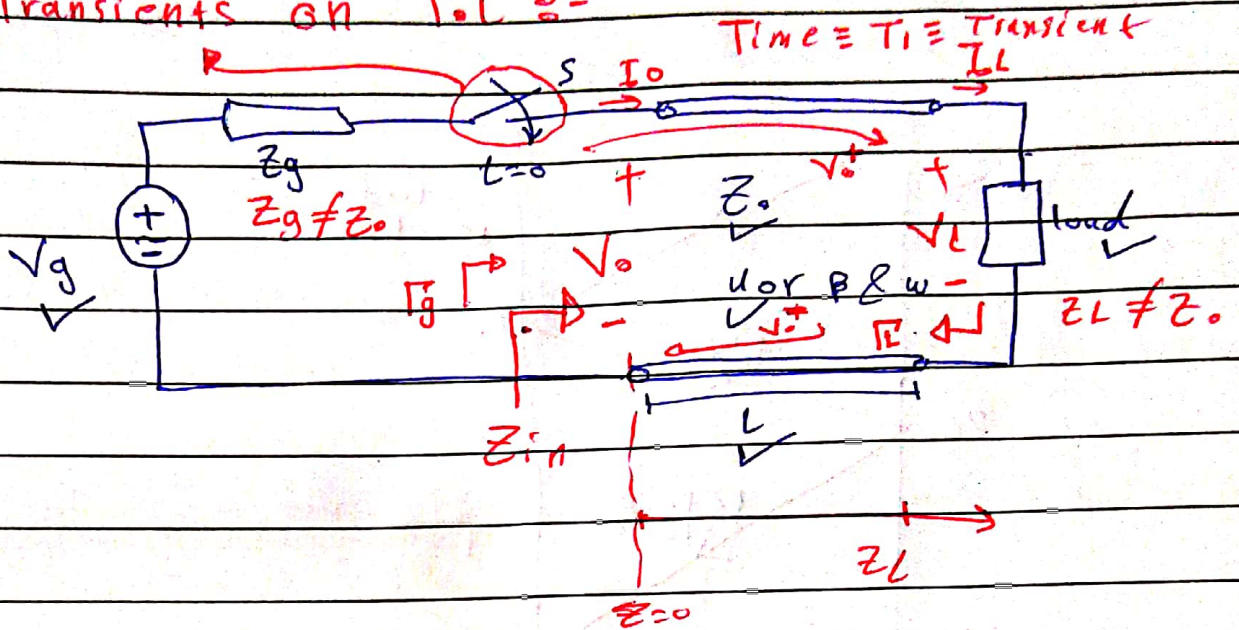 Transients on T.L :-
Time ≡ T1 ≡ Transient
S
I0
IL
Zg
t=0
V0+
+
+
Zg ≠ Z0
Z0
VL
load
Vg
V0
Γg
u or β & w
-
-
ΓL
ZL ≠ Z0
V0+
Zin
L
ZL
Z=0